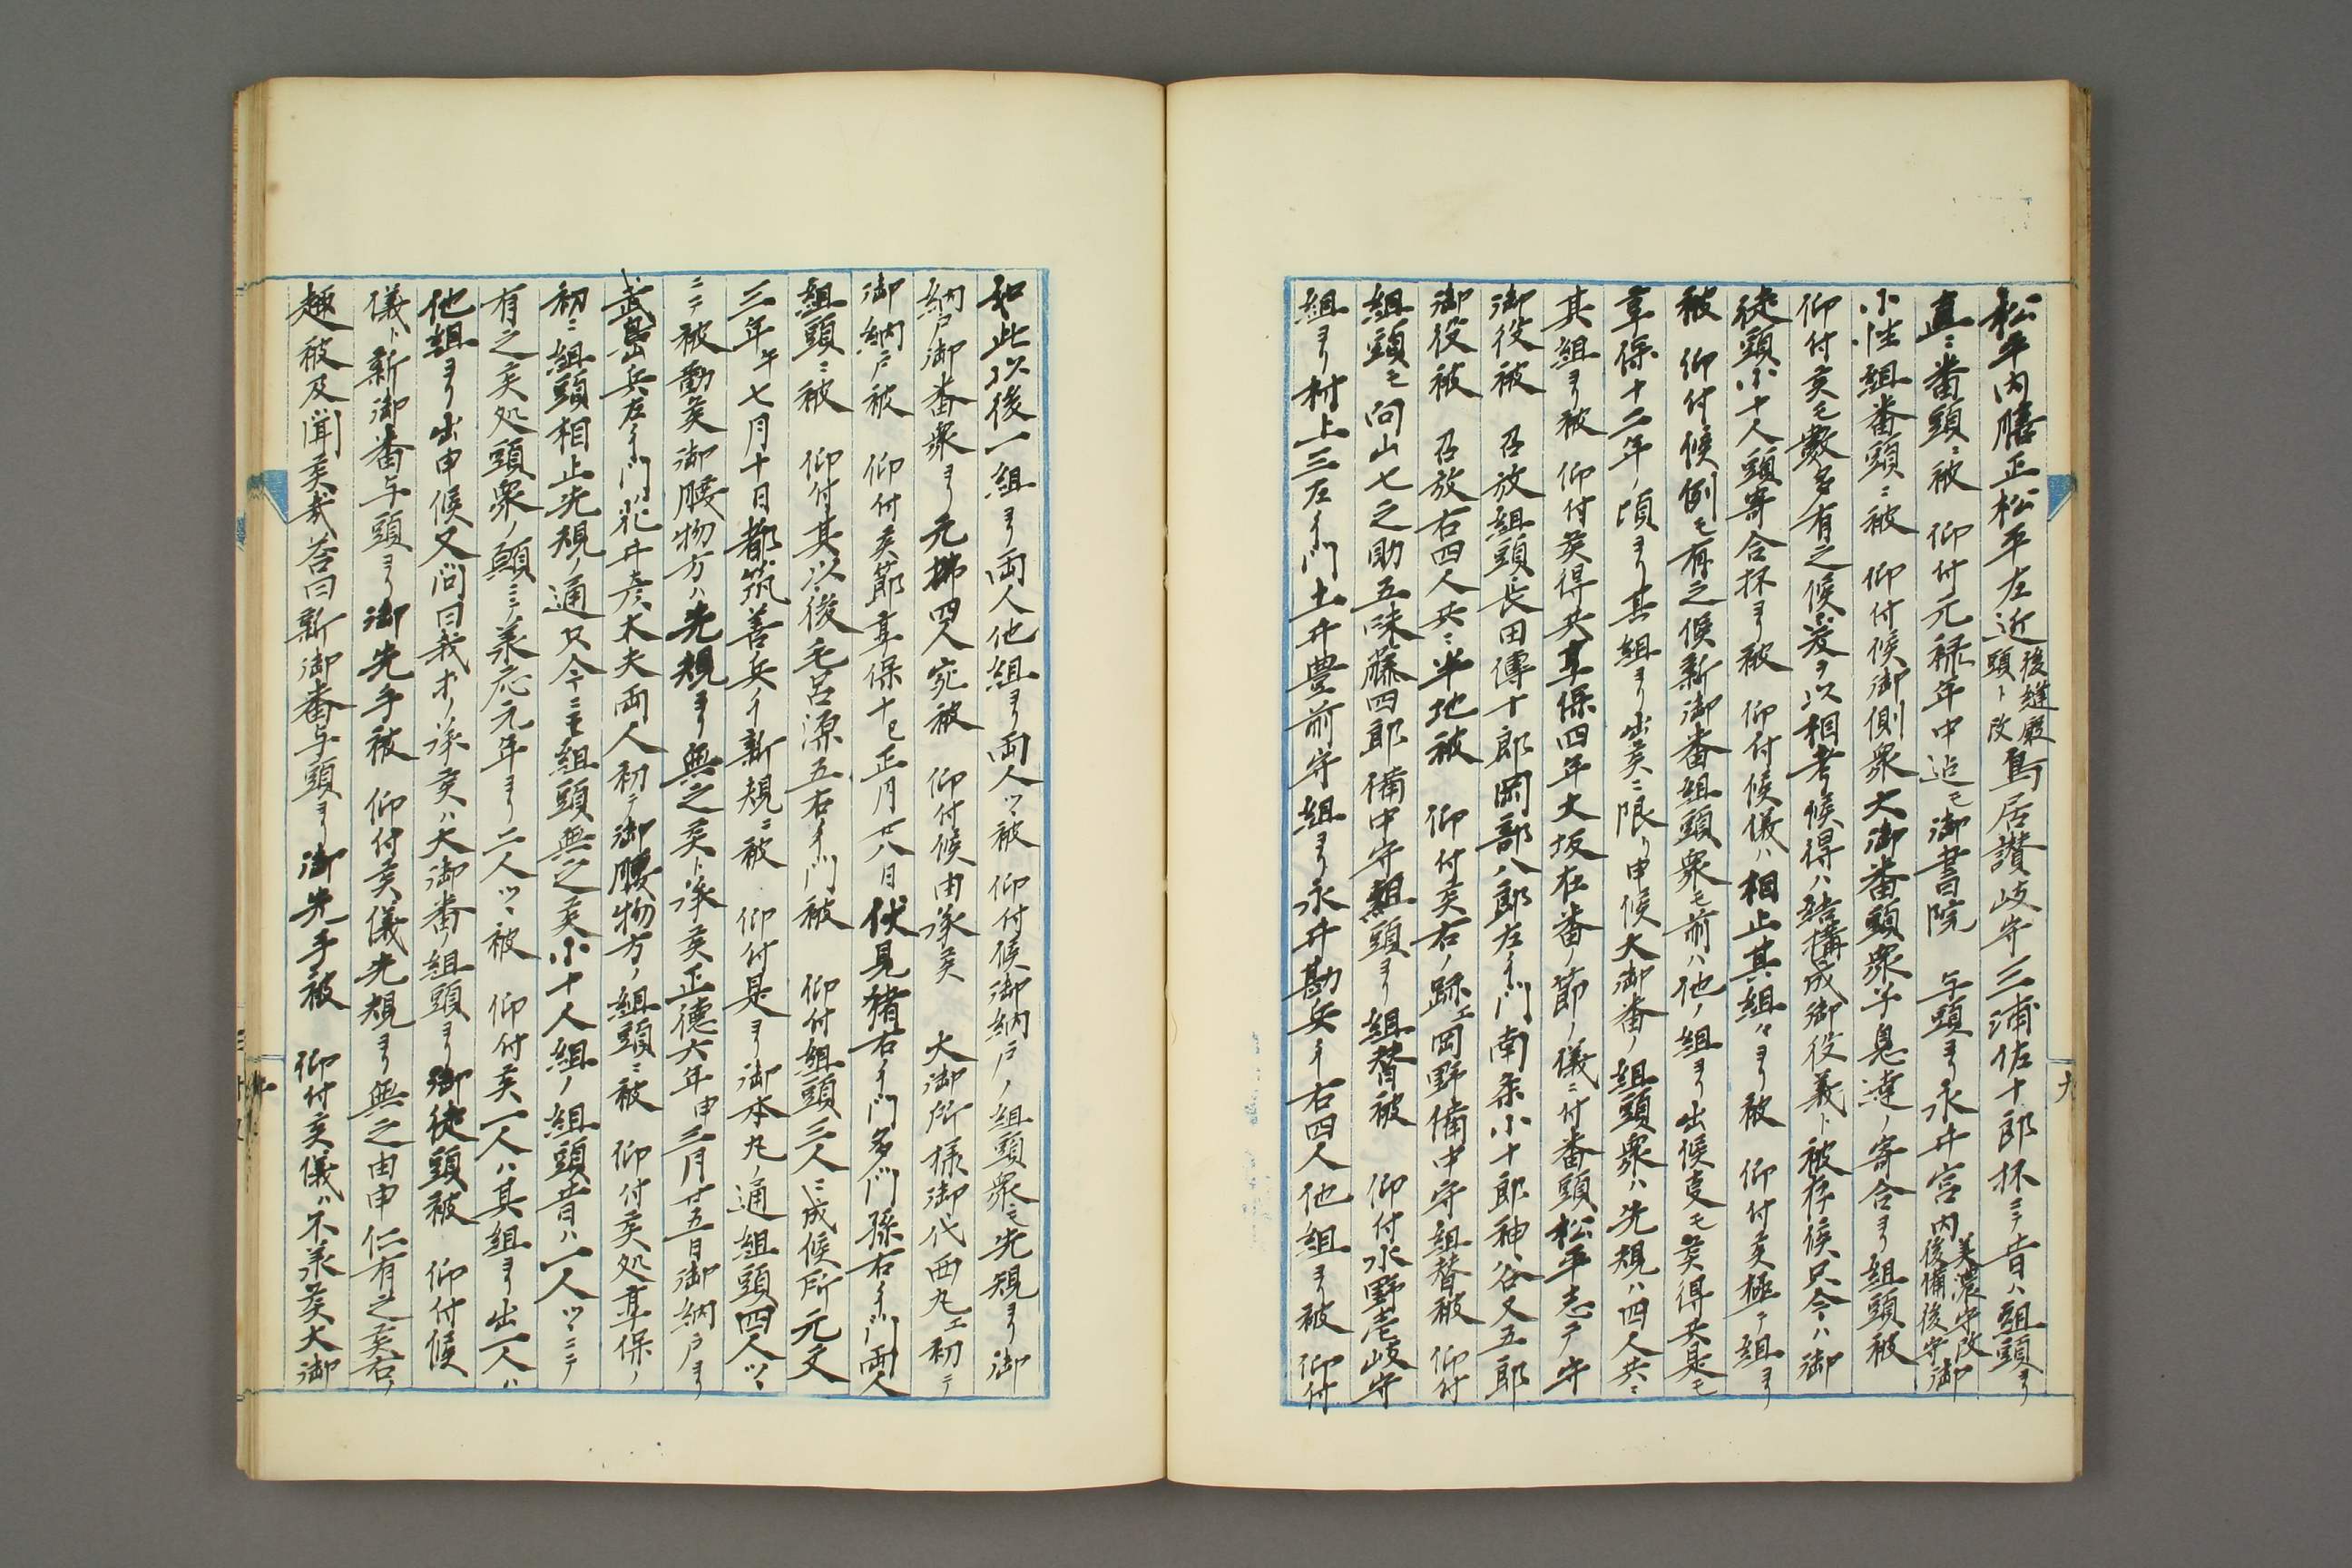 松平内膳正松平左近後縫殿頭ト改鳥居讃岐守三浦佐十郎抔ニテ昔ハ組頭ヨリ
直ニ番頭ニ被　仰付元禄年中迄モ御書院　与頭ヨリ永井宮内美濃守改後備後守御
小性組番頭ニ被　仰付候御側衆大御番頭衆子息達ノ寄合ヨリ組頭被
仰付矦モ數多有之候爰ヲ以相考候得ハ結構成御役義ト被存候只今ハ御
徒頭小十人頭寄合抔ヨリ被　仰付候儀ハ相止其組々ヨリ被　仰付矦極テ組ヨリ
被　仰付候例モ有之候新御番組頭衆モ前ハ他ノ組ヨリ出候叓モ矦得共是モ
享保十二年ノ頃ヨリ其組ヨリ出矦ニ限リ申候大御番ノ組頭衆ハ先規ハ四人共ニ
其組ヨリ被　仰付矦得共享保四年大坂在番ノ節ノ儀ニ付番頭松平志テ守
御役被　召放組頭長田傳十郎岡部八郎左ヱ門南条小十郎神谷又五郎
御役被　召放右四人共ニ半地被　仰付矦右ノ跡エ岡野備中守組替被　仰付
組頭モ向山七之助五味藤四郎備中守組頭ヨリ組替被　仰付水野壱岐守
組ヨリ村上三左ヱ門土井豊前守組ヨリ永井勘兵ヱ右四人他組ヨリ被　仰付
如此以後一組ヨリ両人他組ヨリ両人ツヽ被　仰付候御納戸ノ組頭衆モ先規ヨリ御
納戸御番衆ヨリ元拂四人宛被　仰付候由承矦　大御所様御代西丸エ初テ
御納戸被　仰付矦節享保十巳正月廿八日伏見猪右ヱ門多門孫右ヱ門両人
組頭ニ被　仰付其以後毛呂源五右ヱ門被　仰付組頭三人ニ成候所元文
三年午七月十日都筑善兵ヱ新規ニ被　仰付是ヨリ御本丸ノ通組頭四人ツヽ
ニテ被勤矦御腰物方ハ先規ヨリ無之矦ト承矦正徳六年申三月廿五日御納戸ヨリ
武島兵左ヱ門花井彦太夫両人初テ御腰物方ノ組頭ニ被　仰付矦処享保ノ
初ニ組頭相止先規ノ通只今ニモ組頭無之矦小十人組ノ組頭昔ハ一人ツヽニテ
有之矦処頭衆ノ願ニテ承応元年ヨリ二人ツヽ被　仰付矦一人ハ其組ヨリ出一人ハ
他組ヨリ出申候又問曰我才ノ承矦ハ大御番ノ組頭ヨリ御徒頭被　仰付候
儀ト新御番与頭ヨリ御先手被　仰付矦儀先規ヨリ無之由申仁有之矦右ノ
趣被及聞矦哉答曰新御番与頭ヨリ御先手被　仰付矦儀ハ不承矦大御
九